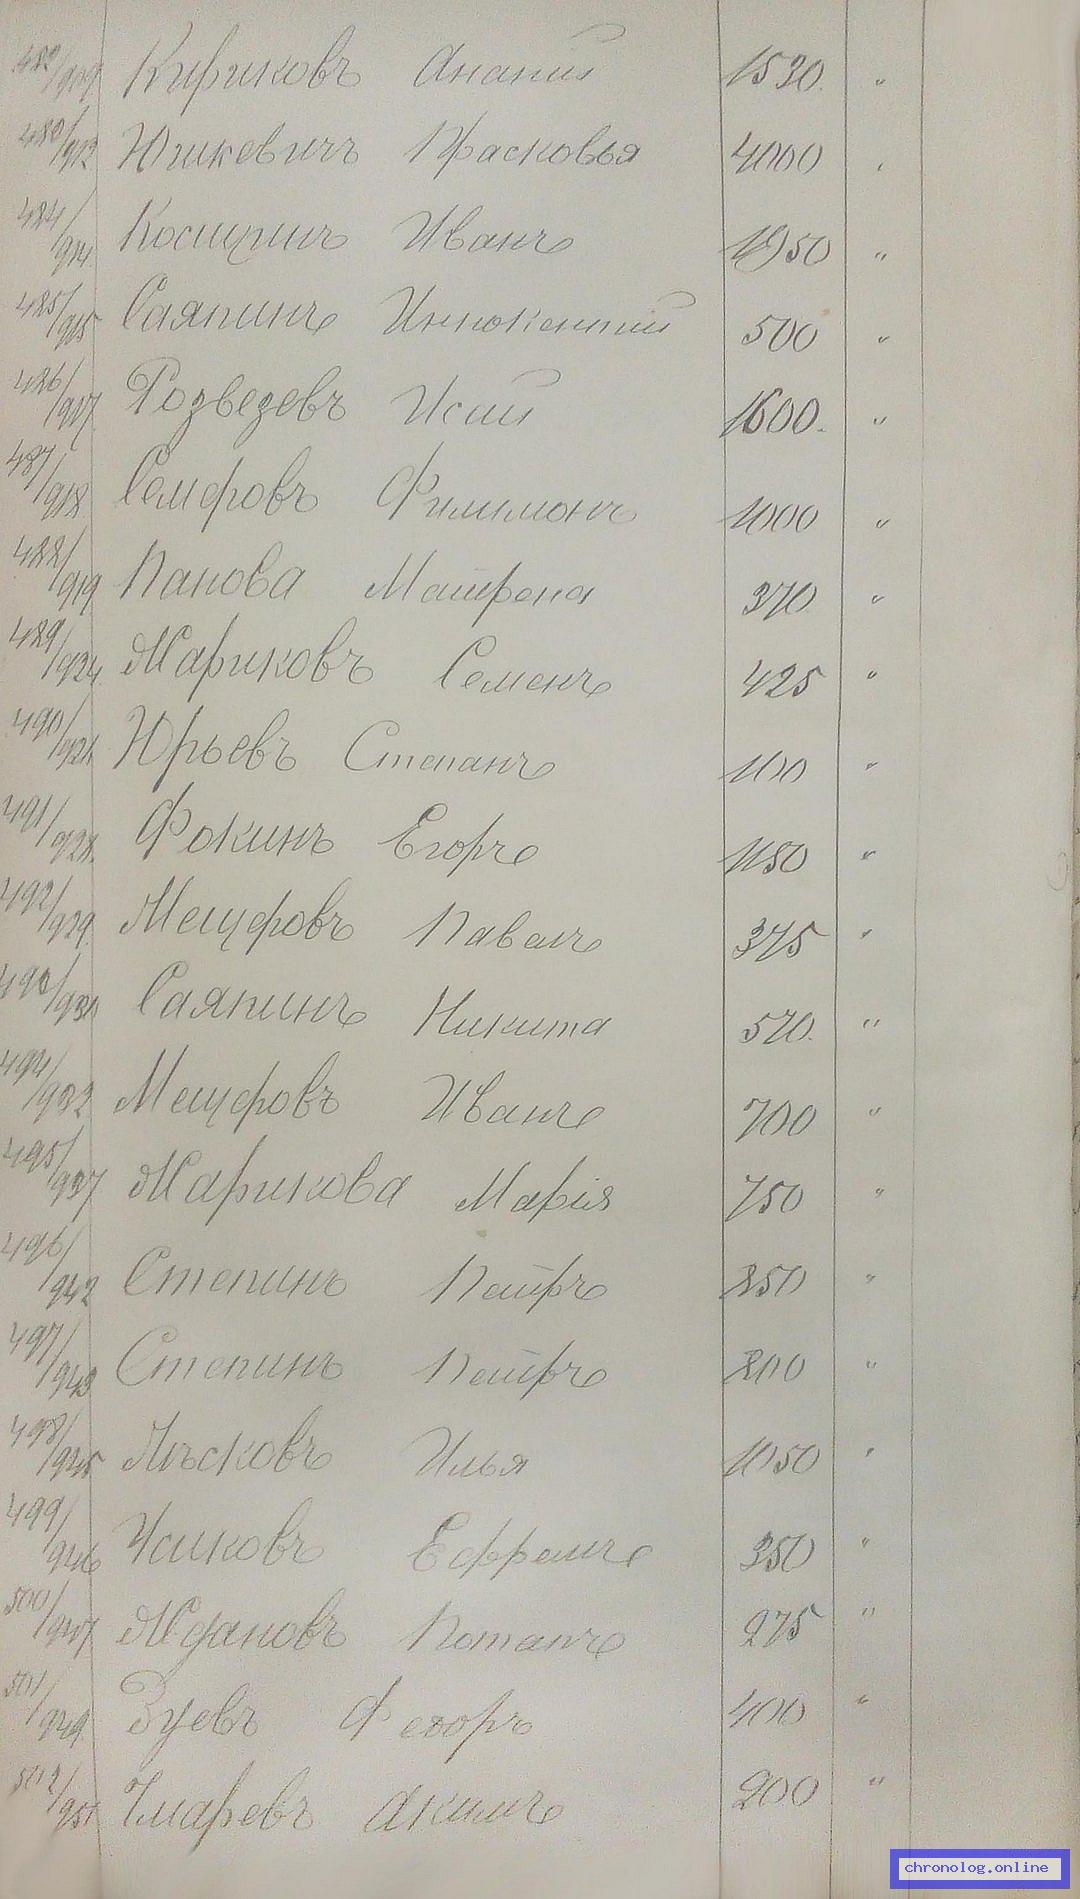 482/909 Кириковъ Ананий 1530. "
480/912 Юшкевичъ Прасковья 4000 "
484/914 Косицинъ Иванъ 1950 "
485/915 Саяпинъ Иннокентий 500 "
486/917 Розведевъ Исай 1600. "
487/918 Семеровъ Филимонъ 1000 "
488/919 Панова Матрена 370 "
489/924 Жариковъ Семенъ 425 "
490/921 Юрьевъ Степанъ 100 "
491/928 Фокинъ Егоръ 1150 "
492/929. Мещеровъ Павелъ 375 "
493/931 Саяпинъ Никита 570. "
494/932 Мещеровъ Иванъ 700 "
495/937 Жарикова Марія 750 "
496/942 Степинъ Петръ 250 "
497/943 Степинъ Петръ 200 "
498/945 Пѣсковъ Илья 1050 "
499/946 Ефремъ 350 "
500/947 Ждановъ Потапъ 275 "
501/949. Зуевъ Федоръ 400 "
502/951 Акимъ 200 "
chronolog.online